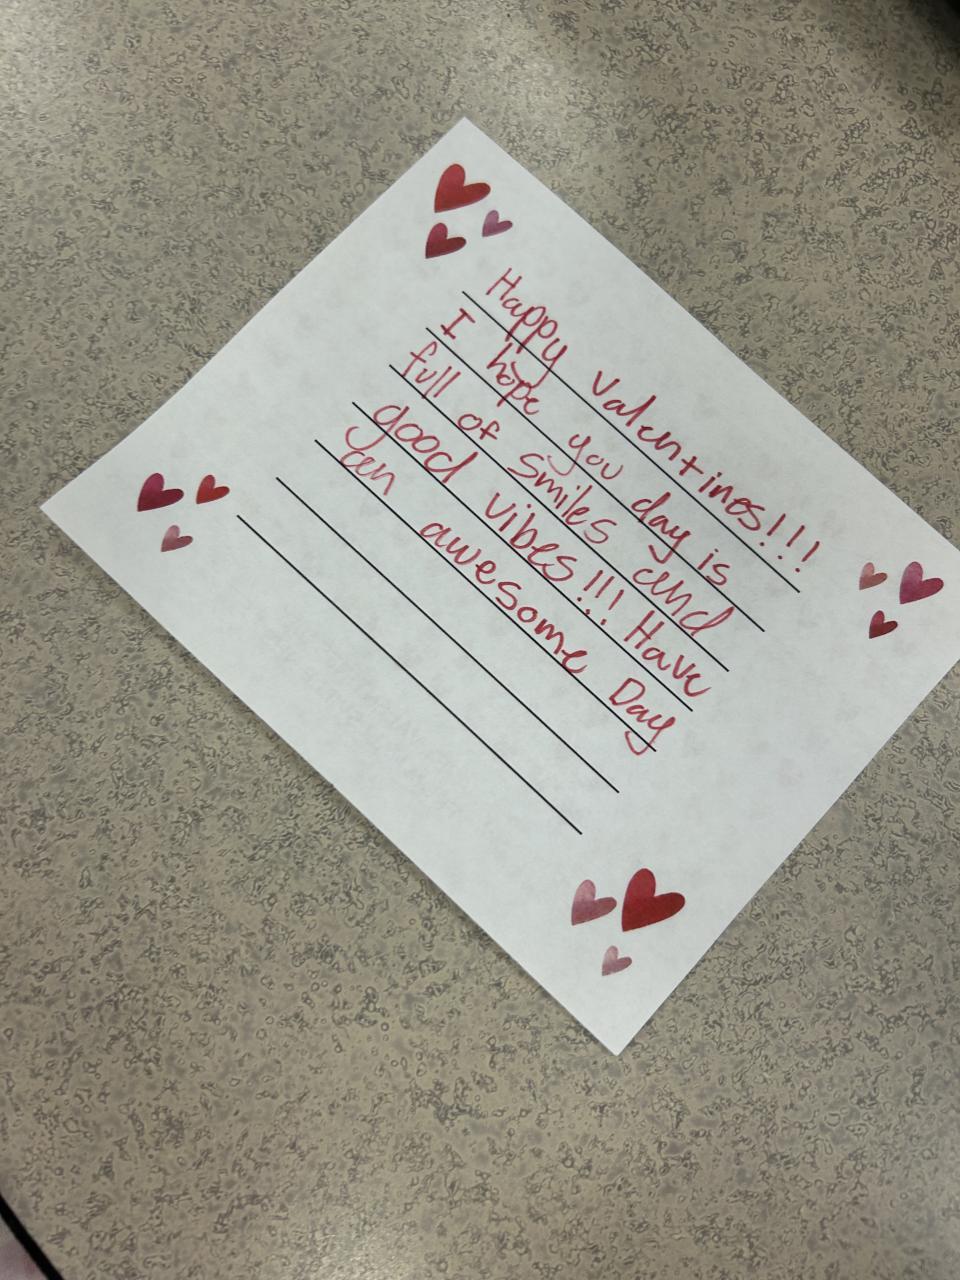 Happy Valentines!!!
I hope you day is
full of smiles and
good vibes!!! Have
an awesome Day